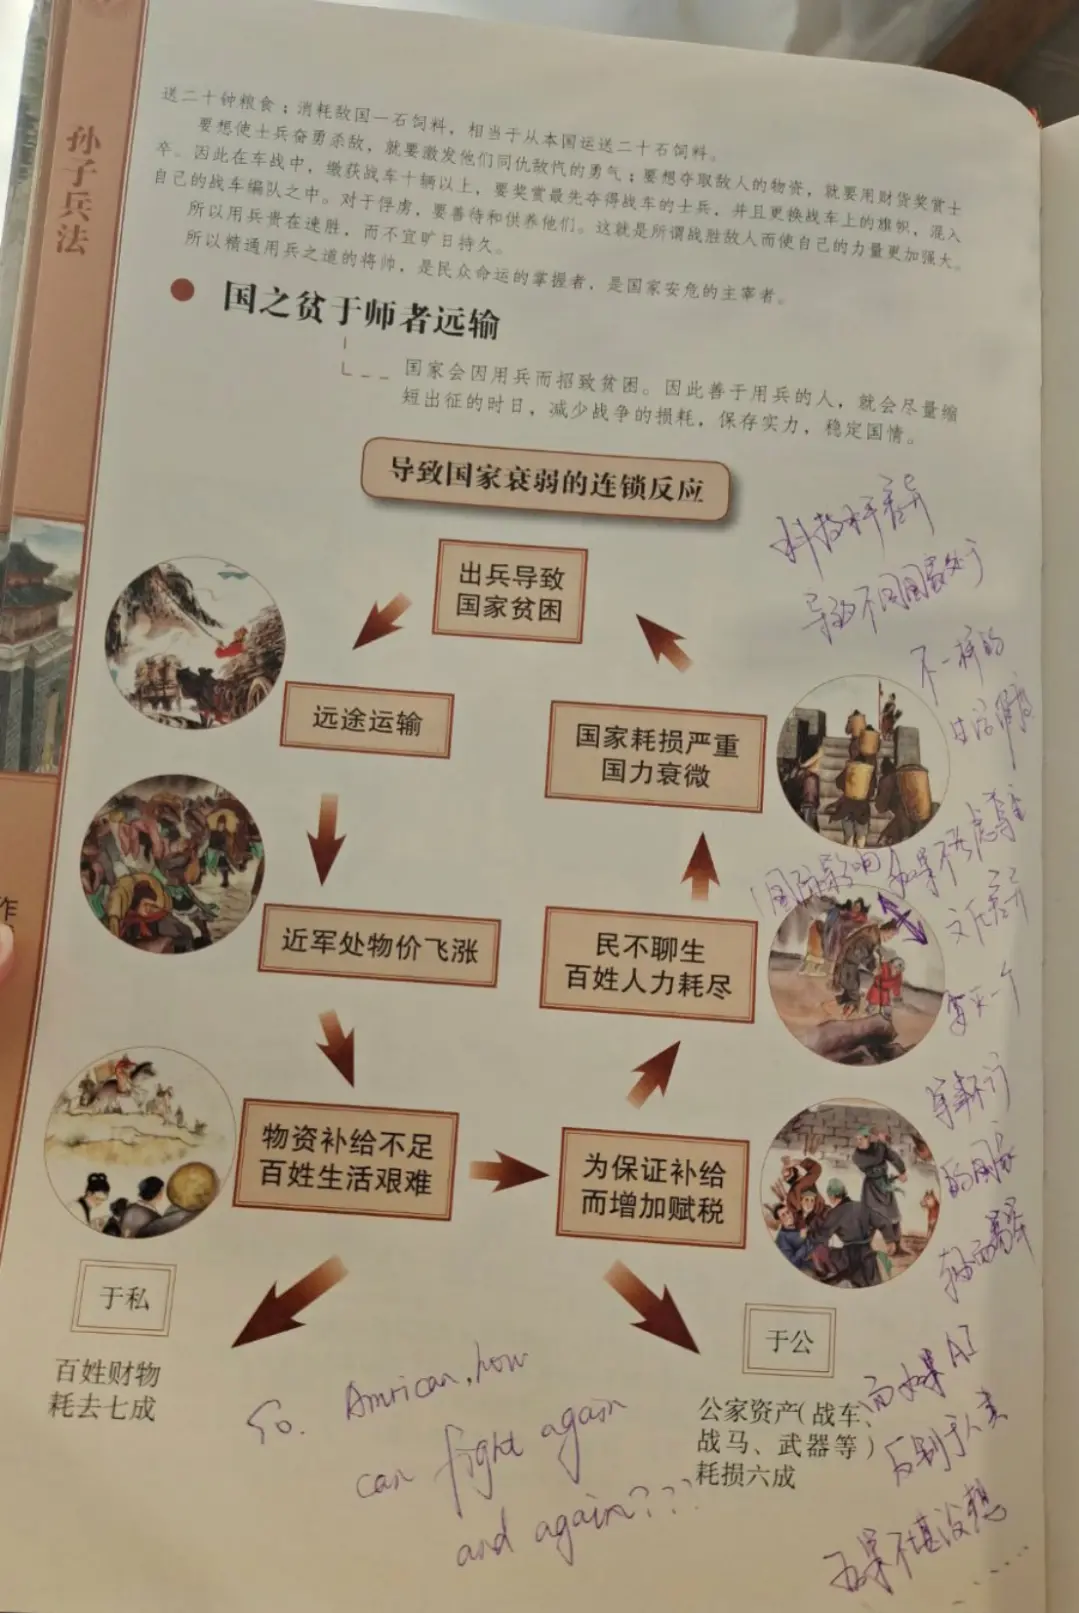 孙子兵法
送二十钟粮食；消耗敌国一石饲料，相当于从本国运送二十石饲料。
要想使士兵奋勇杀敌，就要激发他们同仇敌忾的勇气；要想夺取敌人的物资，就要用财货奖赏士
卒。因此在车战中，缴获战车十辆以上，要奖赏最先夺得战车的士兵，并且更换战车上的旗帜，混入
自己的战车编队之中。对于俘虏，要善待和供养他们。这就是所谓战胜敌人而使自己的力量更加强大。
所以用兵贵在速胜，而不宜旷日持久。
所以精通用兵之道的将帅，是民众命运的掌握者，是国家安危的主宰者。
国之贫于师者远输
国家会因用兵而招致贫困。因此善于用兵的人，就会尽量缩
短出征的时日，减少战争的损耗，保存实力，稳定国情。
导致国家衰弱的连锁反应
出兵导致
国家贫困
远途运输
近军处物价飞涨
物资补给不足
百姓生活艰难
为保证补给
而增加赋税
民不聊生
百姓人力耗尽
国家耗损严重
国力衰微
于私
百姓财物
耗去七成
于公
公家资产（战车、
战马、武器等）
耗损六成
科技水平差异
导致不同国家处于
不一样的
生活
国际影响 如果不考虑
文化差异
的国家
而如果AI
后果不堪设想
......
So. Amrican, how
can fight again
and again???
作